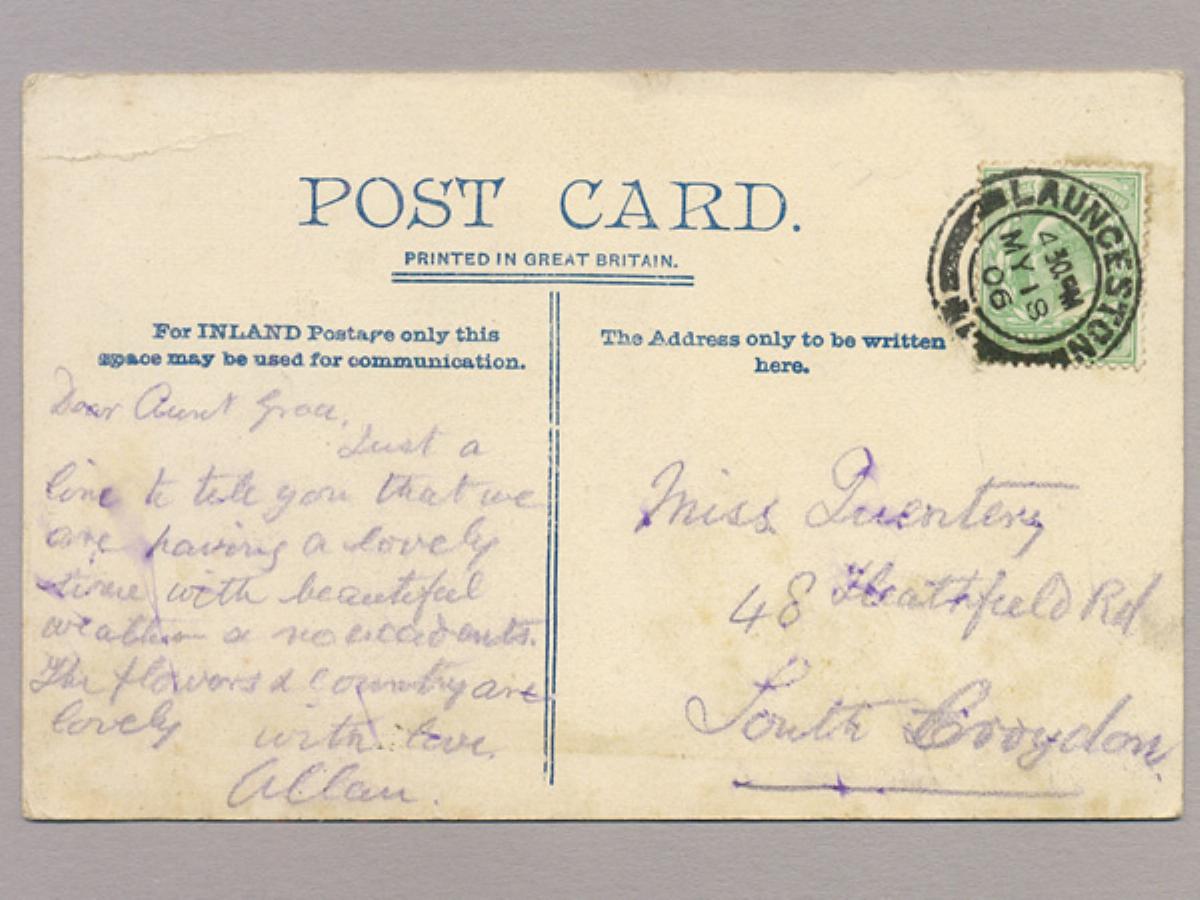 POST CARD.
PRINTED IN GREAT BRITAIN.
For INLAND Postage only this
space may be used for communication.
The Address only to be written
here.
LAUNCESTON
4 30 PM
MY 18
06
Dear Aunt Grace,
Just a
line to tell you that we
are having a lovely
time with beautiful
weather & no accidents.
The flowers & country are
lovely
with love.
Allan.
Miss
48 Heathfield Rd
South Croydon.